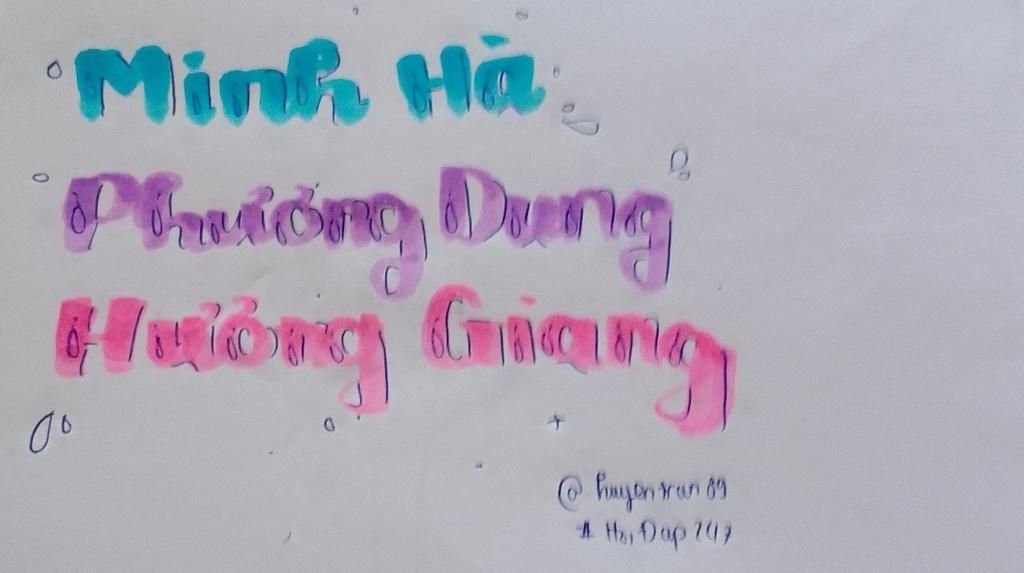 Minh Hà
Phương Dung
Hương Giang
@huyentran09
#HoiDap247